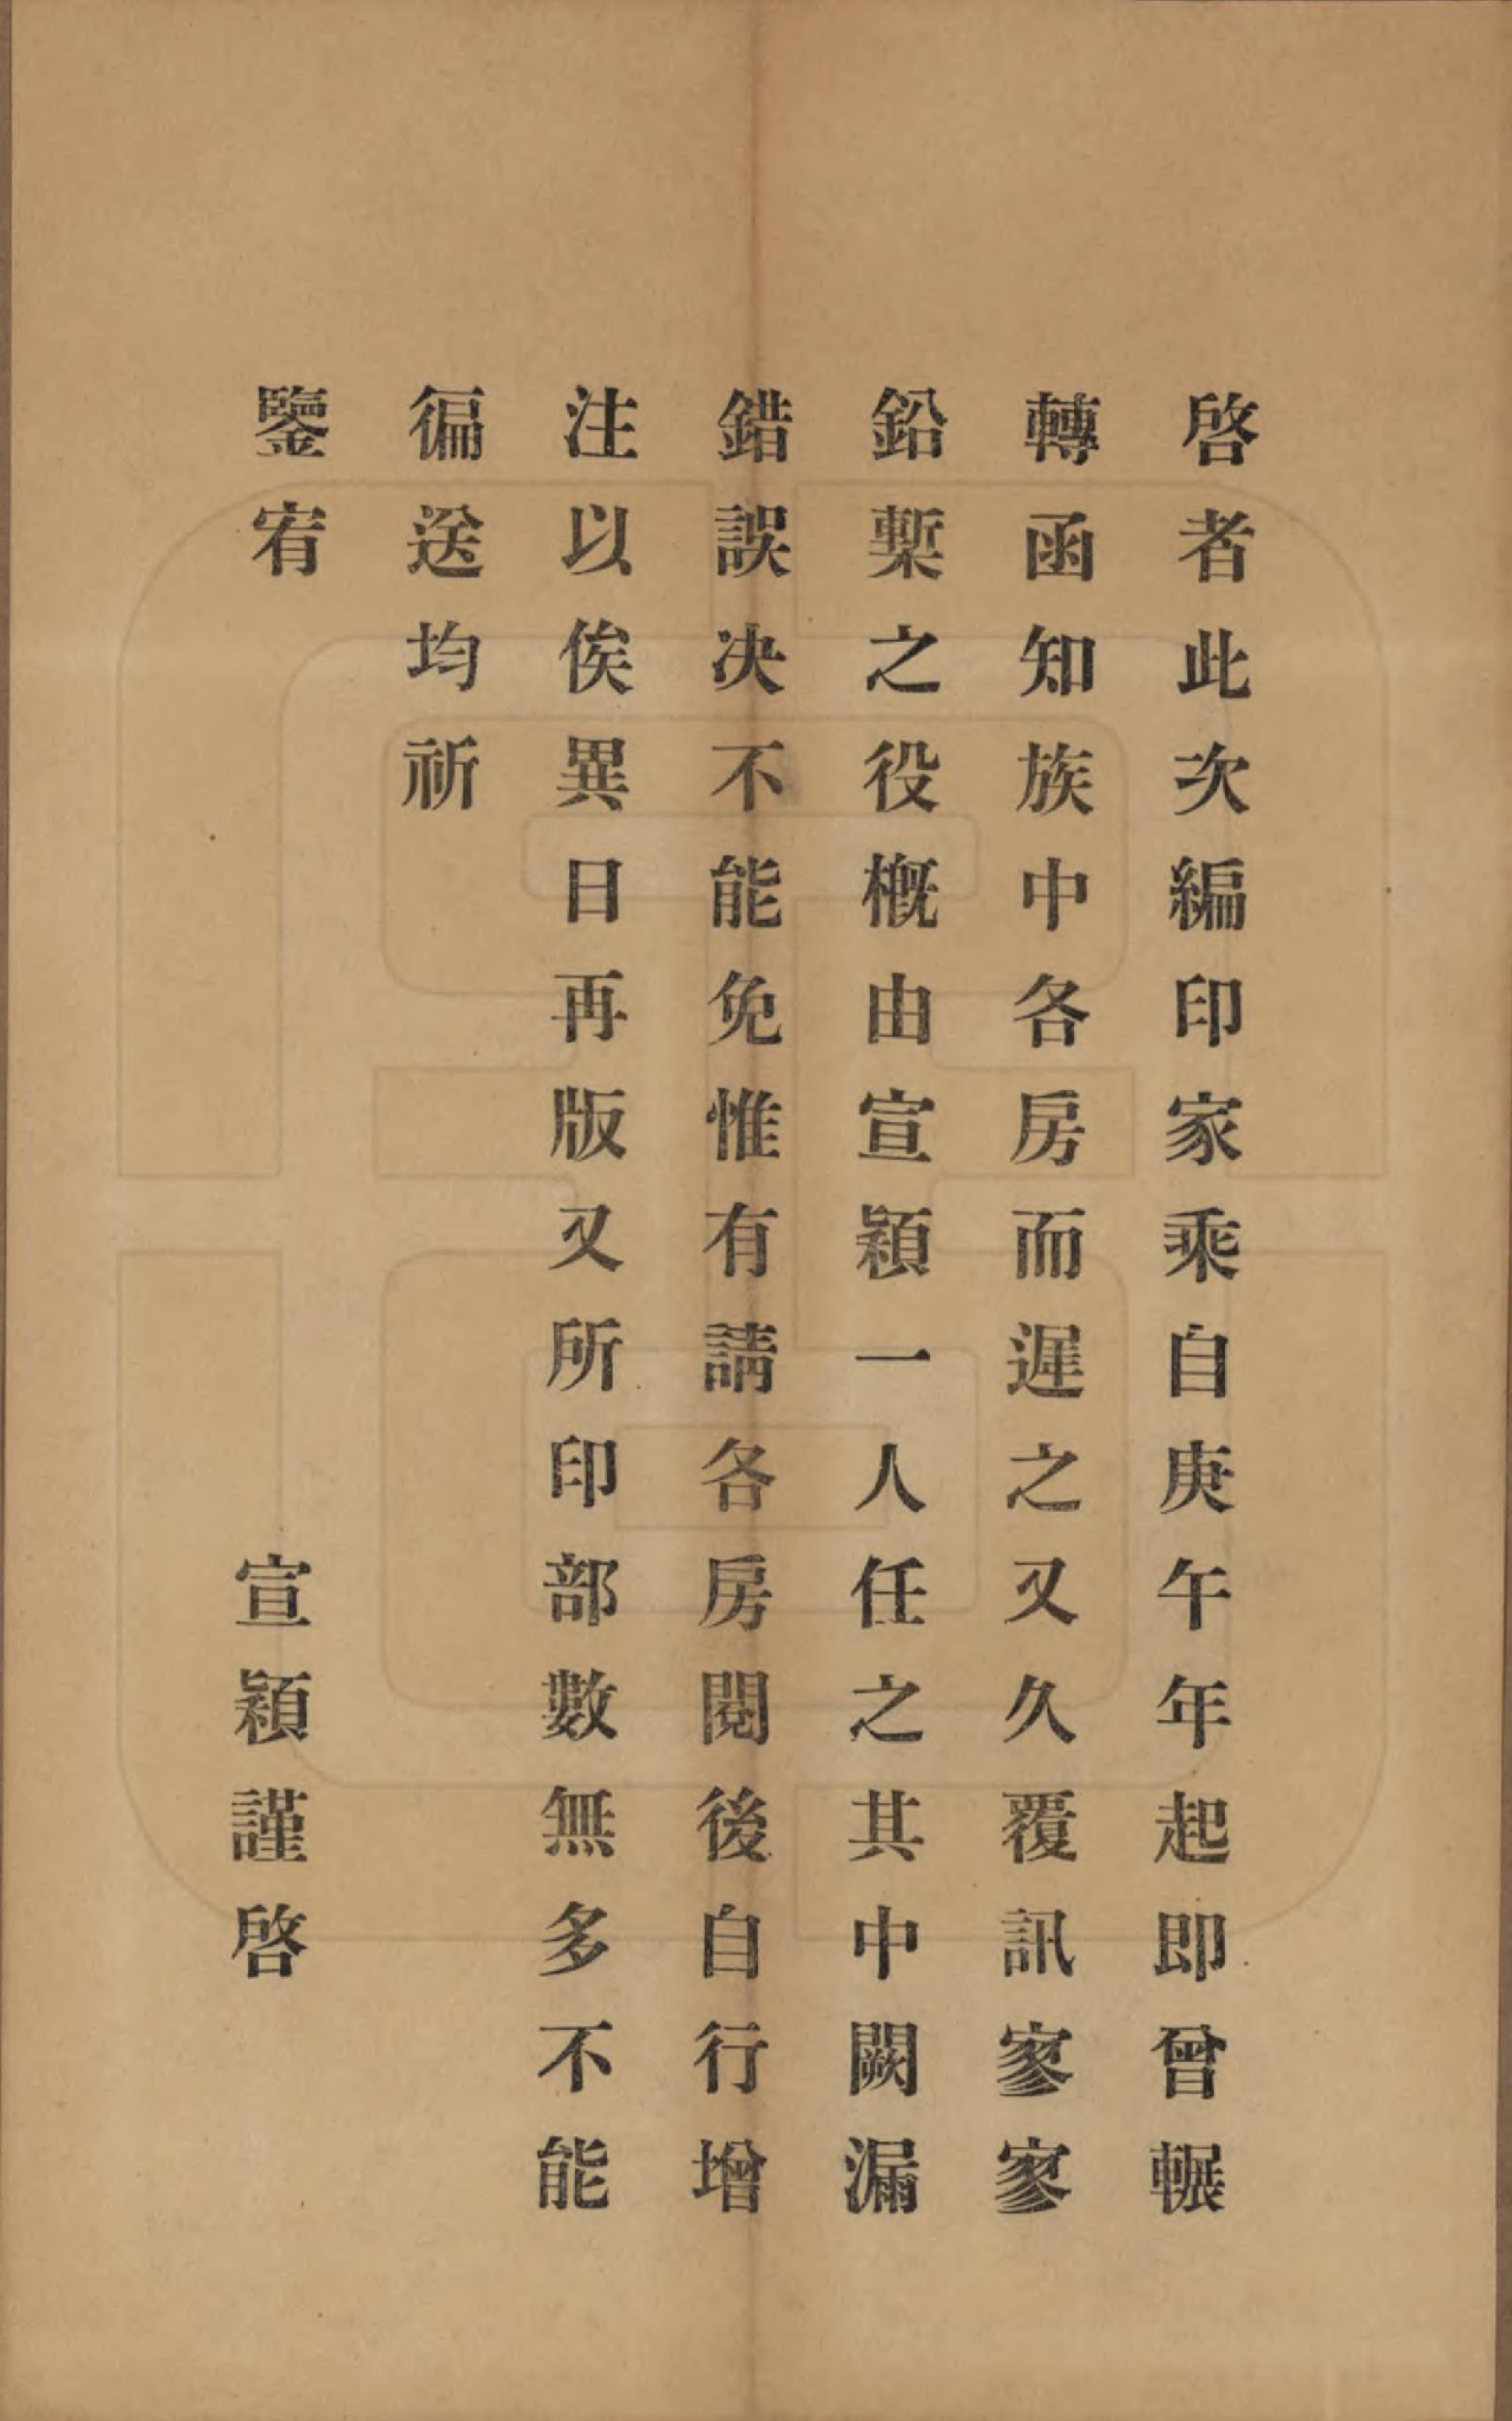 啓者此次編印家乘自庚午年起即曾輾
轉函知族中各房而遲之又久覆訊寥寥
鉛槧之役槪由宣穎一人任之其中闕漏
錯誤决不能免惟有請各房閱後自行增
注以俟異日再版又所印部數無多不能
徧送均祈
鑒宥
宣穎謹啓